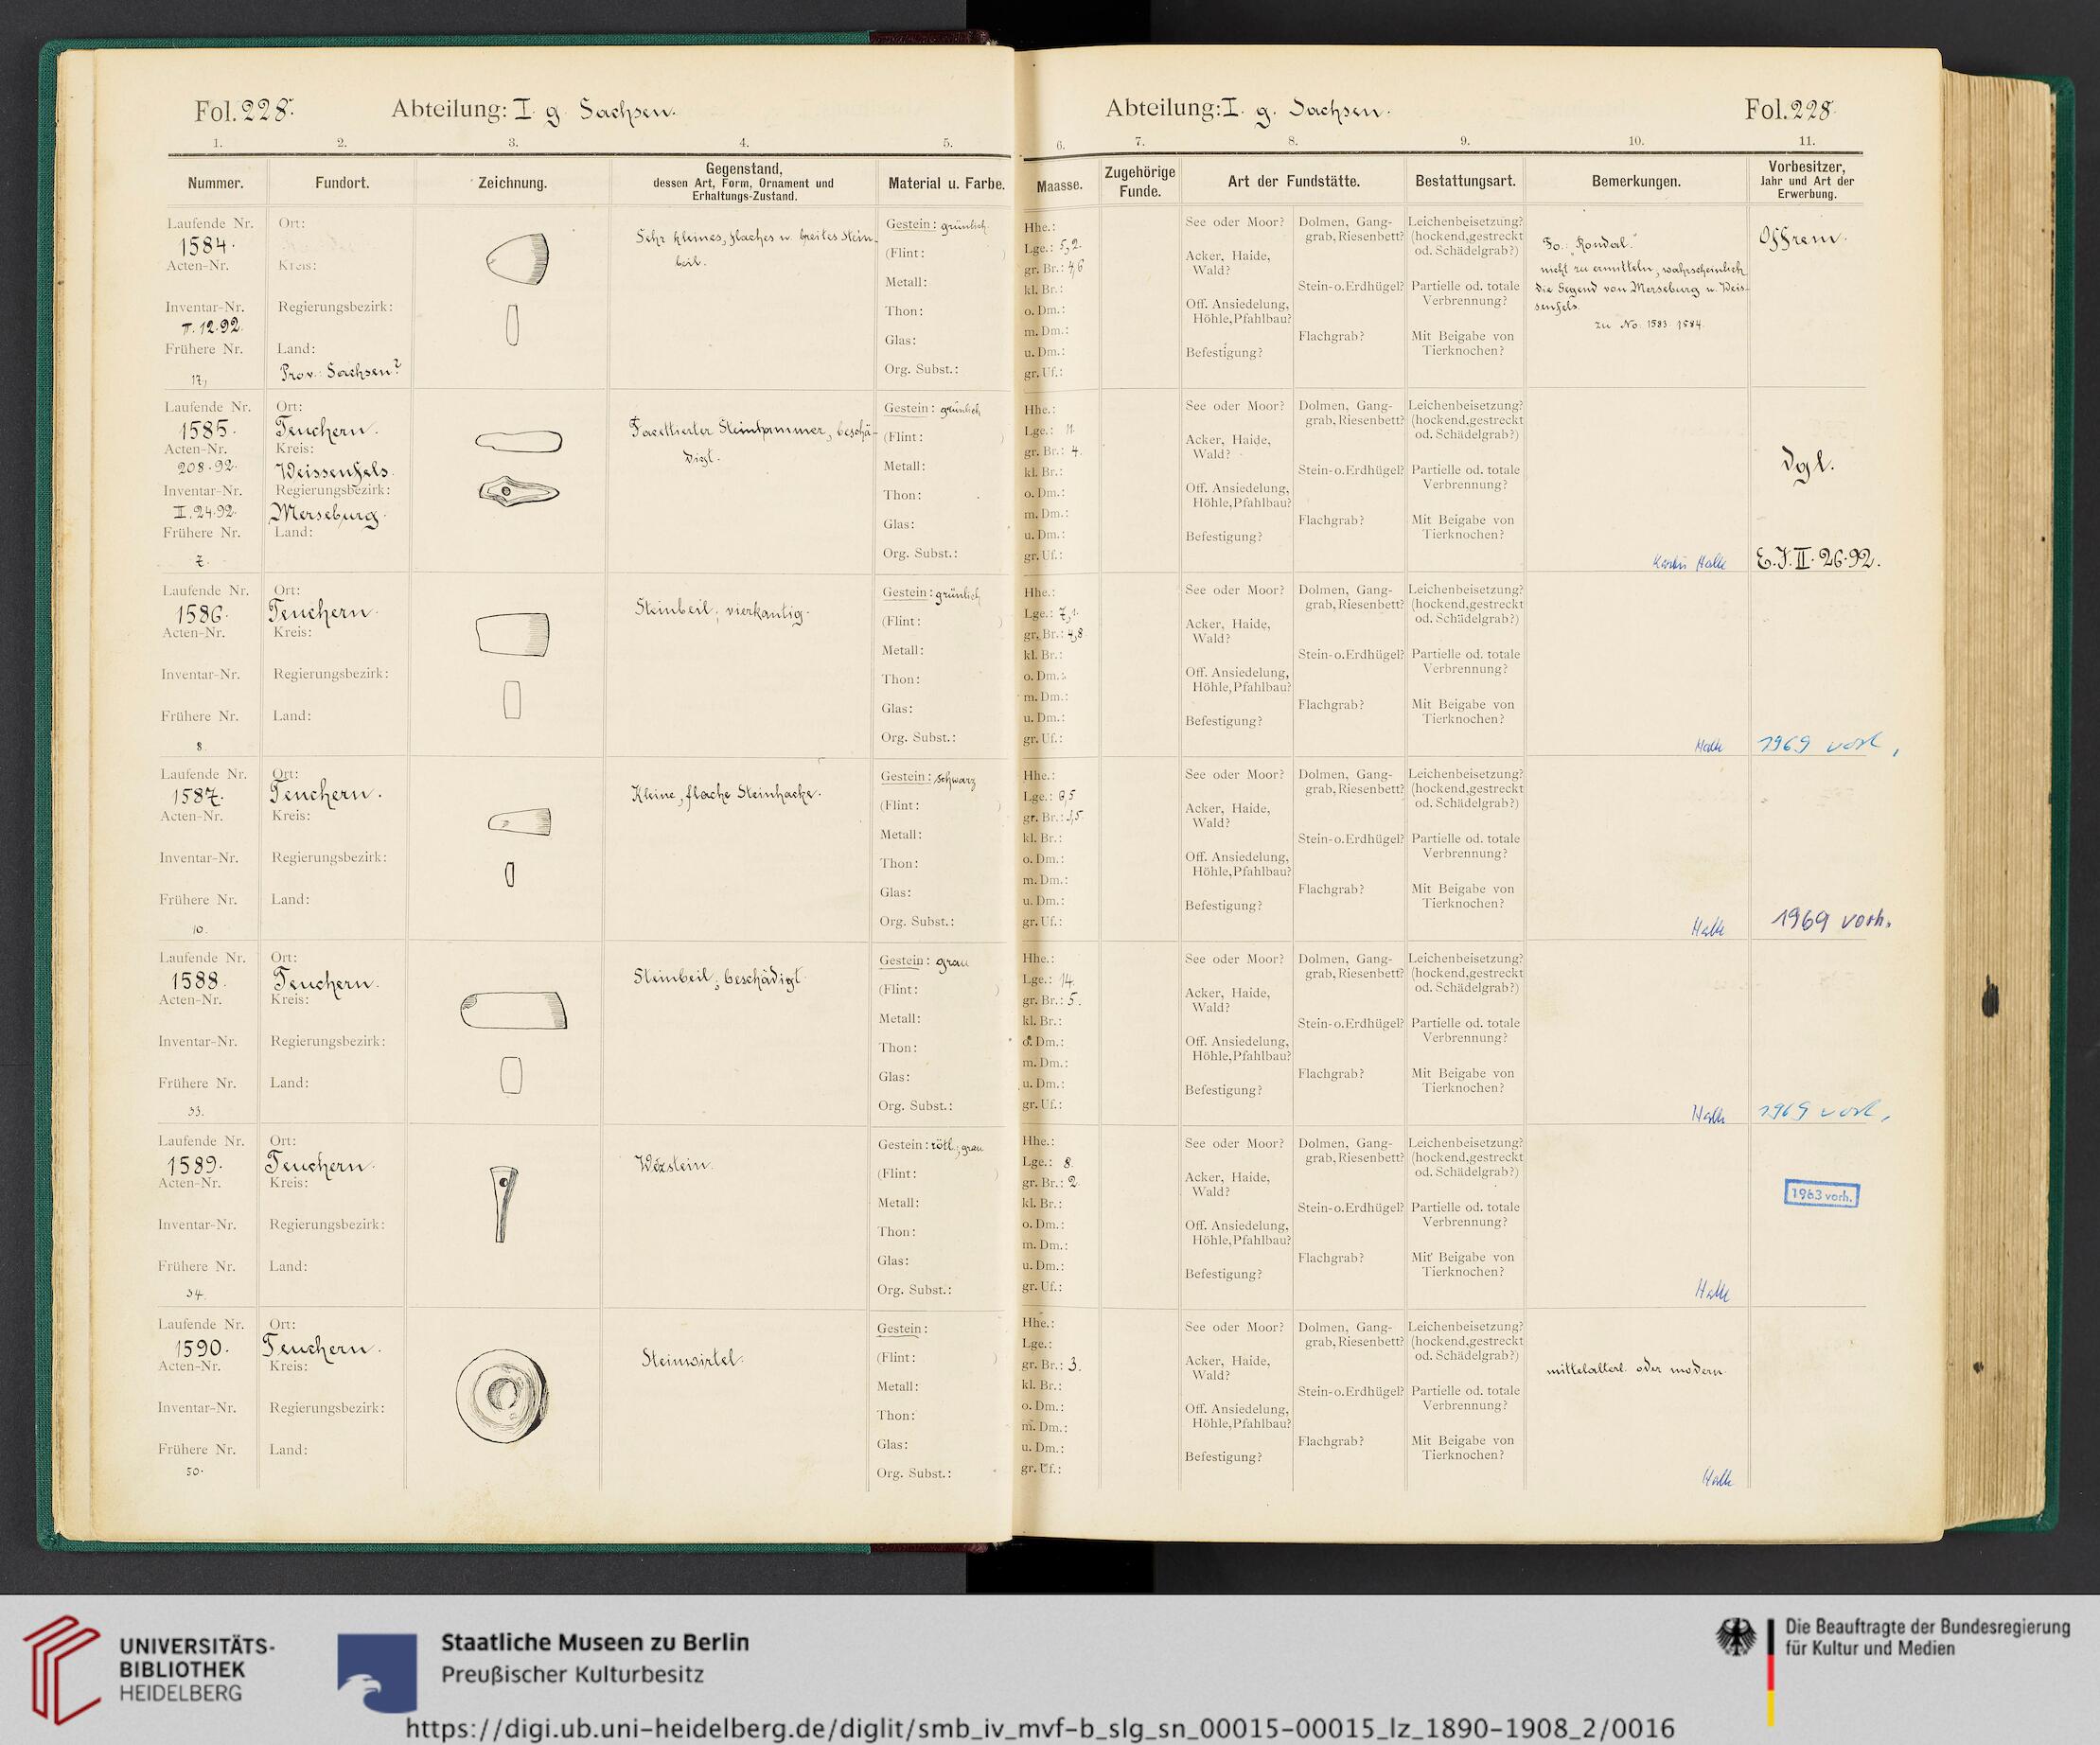 Fol. 228. Abteilung: I. g. Sachsen.
1. 2. 3. 4. 5.
Nummer. Fundort. Zeichnung. Gegenstand, dessen Art, Form, Ornament und Erhaltungs-Zustand. Material u. Farbe.
Laufende Nr. Ort:
1584.
Acten-Nr. Kreis:
Inventar-Nr. Regierungsbezirk:
II. 12.92.
Frühere Nr. Land:
17, Prov. Sachsen?
Sehr kleines, flaches u. breites Stein-
beil.
Gestein: grünlich.
(Flint: )
Metall:
Thon:
Glas:
Org. Subst.:
Laufende Nr. Ort:
1585. Teuchern.
Acten-Nr. Kreis:
208.92. Weissenfels.
Inventar-Nr. Regierungsbezirk:
II.24.92. Merseburg.
Frühere Nr. Land:
7.
Facettierter Steinhammer, beschä-
digt.
Gestein: grünlich
(Flint: )
Metall:
Thon:
Glas:
Org. Subst.:
Laufende Nr. Ort:
1586. Teuchern.
Acten-Nr. Kreis:
Inventar-Nr. Regierungsbezirk:
Frühere Nr. Land:
8.
Steinbeil; vierkantig.
Gestein: grünlich
(Flint: )
Metall:
Thon:
Glas:
Org. Subst.:
Laufende Nr. Ort:
1587. Teuchern.
Acten-Nr. Kreis:
Inventar-Nr. Regierungsbezirk:
Frühere Nr. Land:
10.
Kleine, flache Steinhacke.
Gestein: schwarz
(Flint: )
Metall:
Thon:
Glas:
Org. Subst.:
Laufende Nr. Ort:
1588. Teuchern.
Acten-Nr. Kreis:
Inventar-Nr. Regierungsbezirk:
Frühere Nr. Land:
33.
Steinbeil; beschädigt.
Gestein: grau
(Flint: )
Metall:
Thon:
Glas:
Org. Subst.:
Laufende Nr. Ort:
1589. Teuchern.
Acten-Nr. Kreis:
Inventar-Nr. Regierungsbezirk:
Frühere Nr. Land:
34.
Wezstein.
Gestein: rötl., grau
(Flint: )
Metall:
Thon:
Glas:
Org. Subst.:
Laufende Nr. Ort:
1590. Teuchern.
Acten-Nr. Kreis:
Inventar-Nr. Regierungsbezirk:
Frühere Nr. Land:
50.
Steinwirtel.
Gestein:
(Flint: )
Metall:
Thon:
Glas:
Org. Subst.:
Abteilung: I. g. Sachsen. Fol. 228.
6. 7. 8. 9. 10. 11.
Maasse. Zugehörige Funde. Art der Fundstätte. Bestattungsart. Bemerkungen. Vorbesitzer, Jahr und Art der Erwerbung.
Hhe.:
Lge.: 5,2.
gr. Br.: 4,6
kl. Br.:
o. Dm.:
m. Dm.:
u. Dm.:
gr. Uf.:
See oder Moor?
Acker, Haide,
Wald?
Off. Ansiedelung,
Höhle, Pfahlbau?
Befestigung?
Dolmen, Gang-
grab, Riesenbett?
Stein- o. Erdhügel?
Flachgrab?
Leichenbeisetzung?
(hockend, gestreckt
od. Schädelgrab?)
Partielle od. totale
Verbrennung?
Mit Beigabe von
Tierknochen?
Fo.: "Rondal."
nicht zu ermitteln, wahrscheinlich
die Gegend von Merseburg u. Weis-
senfels.
zu No. 1583 1584.
Offrem.
Hhe.:
Lge.: 11.
gr. Br.: 4.
kl. Br.:
o. Dm.:
m. Dm.:
u. Dm.:
gr. Uf.:
See oder Moor?
Acker, Haide,
Wald?
Off. Ansiedelung,
Höhle, Pfahlbau?
Befestigung?
Dolmen, Gang-
grab, Riesenbett?
Stein- o. Erdhügel?
Flachgrab?
Leichenbeisetzung?
(hockend, gestreckt
od. Schädelgrab?)
Partielle od. totale
Verbrennung?
Mit Beigabe von
Tierknochen?
Halle
dgl.
E.J. II. 26.92.
Hhe.:
Lge.: 7,1.
gr. Br.: 4,8
kl. Br.:
o. Dm.:
m. Dm.:
u. Dm.:
gr. Uf.:
See oder Moor?
Acker, Haide,
Wald?
Off. Ansiedelung,
Höhle, Pfahlbau?
Befestigung?
Dolmen, Gang-
grab, Riesenbett?
Stein- o. Erdhügel?
Flachgrab?
Leichenbeisetzung?
(hockend, gestreckt
od. Schädelgrab?)
Partielle od. totale
Verbrennung?
Mit Beigabe von
Tierknochen?
Halle
1969 vorh.
Hhe.:
Lge.: 6,5
gr. Br.:
kl. Br.:
o. Dm.:
m. Dm.:
u. Dm.:
gr. Uf.:
See oder Moor?
Acker, Haide,
Wald?
Off. Ansiedelung,
Höhle, Pfahlbau?
Befestigung?
Dolmen, Gang-
grab, Riesenbett?
Stein- o. Erdhügel?
Flachgrab?
Leichenbeisetzung?
(hockend, gestreckt
od. Schädelgrab?)
Partielle od. totale
Verbrennung?
Mit Beigabe von
Tierknochen?
Halle
1969 vorh.
Hhe.:
Lge.: 14.
gr. Br.: 5.
kl. Br.:
o. Dm.:
m. Dm.:
u. Dm.:
gr. Uf.:
See oder Moor?
Acker, Haide,
Wald?
Off. Ansiedelung,
Höhle, Pfahlbau?
Befestigung?
Dolmen, Gang-
grab, Riesenbett?
Stein- o. Erdhügel?
Flachgrab?
Leichenbeisetzung?
(hockend, gestreckt
od. Schädelgrab?)
Partielle od. totale
Verbrennung?
Mit Beigabe von
Tierknochen?
Halle
1969 vorh.
Hhe.:
Lge.: 8.
gr. Br.: 2.
kl. Br.:
o. Dm.:
m. Dm.:
u. Dm.:
gr. Uf.:
See oder Moor?
Acker, Haide,
Wald?
Off. Ansiedelung,
Höhle, Pfahlbau?
Befestigung?
Dolmen, Gang-
grab, Riesenbett?
Stein- o. Erdhügel?
Flachgrab?
Leichenbeisetzung?
(hockend, gestreckt
od. Schädelgrab?)
Partielle od. totale
Verbrennung?
Mit Beigabe von
Tierknochen?
Halle
1963 vorh.
Hhe.:
Lge.:
gr. Br.: 3.
kl. Br.:
o. Dm.:
m. Dm.:
u. Dm.:
gr. Uf.:
See oder Moor?
Acker, Haide,
Wald?
Off. Ansiedelung,
Höhle, Pfahlbau?
Befestigung?
Dolmen, Gang-
grab, Riesenbett?
Stein- o. Erdhügel?
Flachgrab?
Leichenbeisetzung?
(hockend, gestreckt
od. Schädelgrab?)
Partielle od. totale
Verbrennung?
Mit Beigabe von
Tierknochen?
mittelalterl. oder modern.
Halle
UNIVERSITÄTS-
BIBLIOTHEK
HEIDELBERG
Staatliche Museen zu Berlin
Preußischer Kulturbesitz
Die Beauftragte der Bundesregierung
für Kultur und Medien
https://digi.ub.uni-heidelberg.de/diglit/smb_iv_mvf-b_slg_sn_00015-00015_lz_1890-1908_2/0016